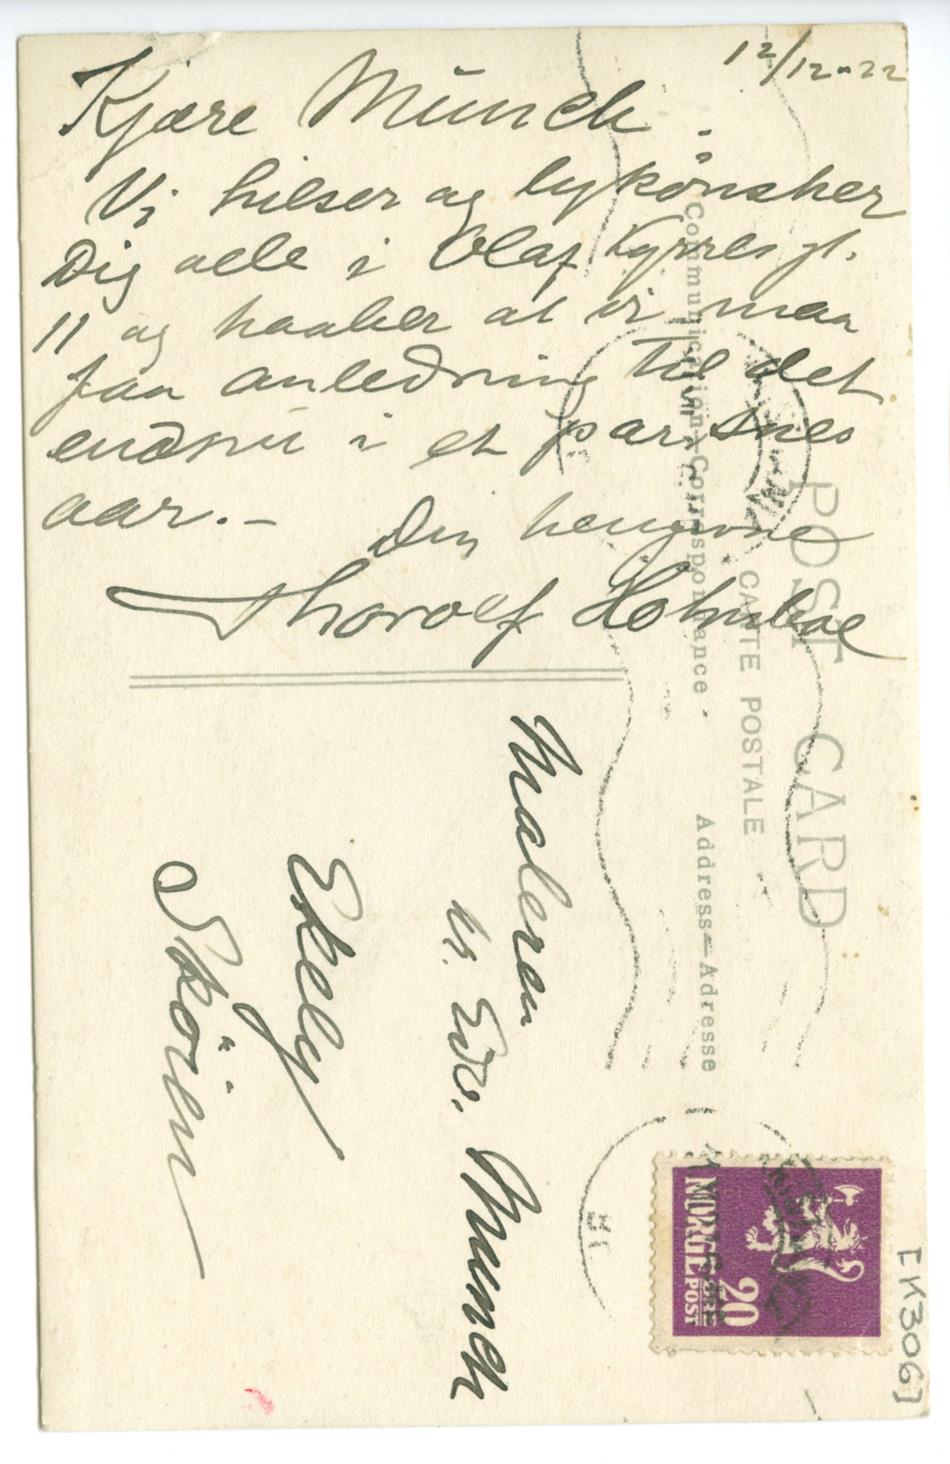 12/12-22
Kjære Munch!
Vi hilser og lykønsker
Dig alle i Olaf Kyrres gt.
11 og haaber at vi maa
faa anledning til det
endnu i et par snes
aar.-
Din hengivne
Thorolf Holmboe
POST CARD
CARTE POSTALE
Communication-Correspondance
Address-Adresse
Maleren
hr. Edv. Munch
Ekely
Skøien
NORGE
20
ØRE
POST
[K3061